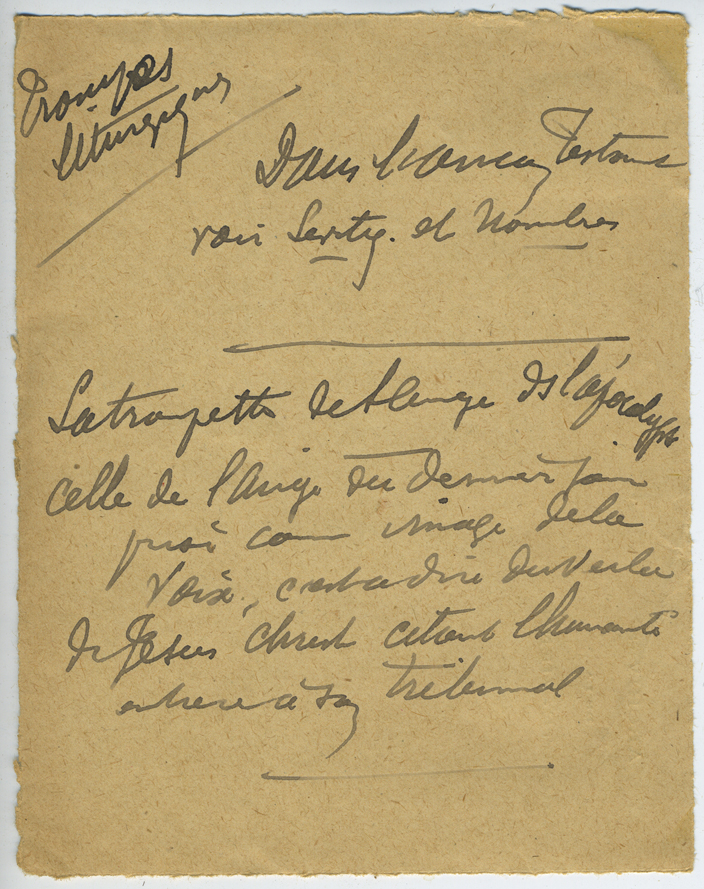 Trompes
liturgiques
Dans l'ancien Testam
voir Levitiq. et Nombres
La trompette de l'ange ds l'apocalypse
celle de l'Ange du dernier jour
prise comme image de la
Voix, c'est a dire du Verbe
de Jésus Christ citant l'humanité
entiere à son tribunal